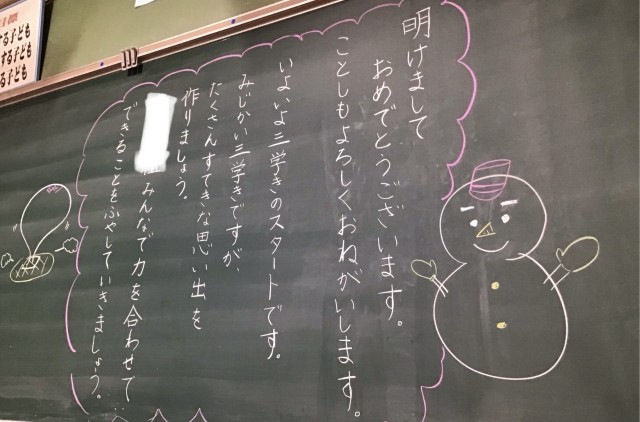 明けまして
おめでとうございます。
ことしもよろしくおねがいします。
いよいよ三学きのスタートです。
みじかい三学きですが、
たくさんすてきな思い出を
作りましょう。
みんなで力を合わせて
できることをふやしていきましょう。
する子ども
する子ども
る子ども